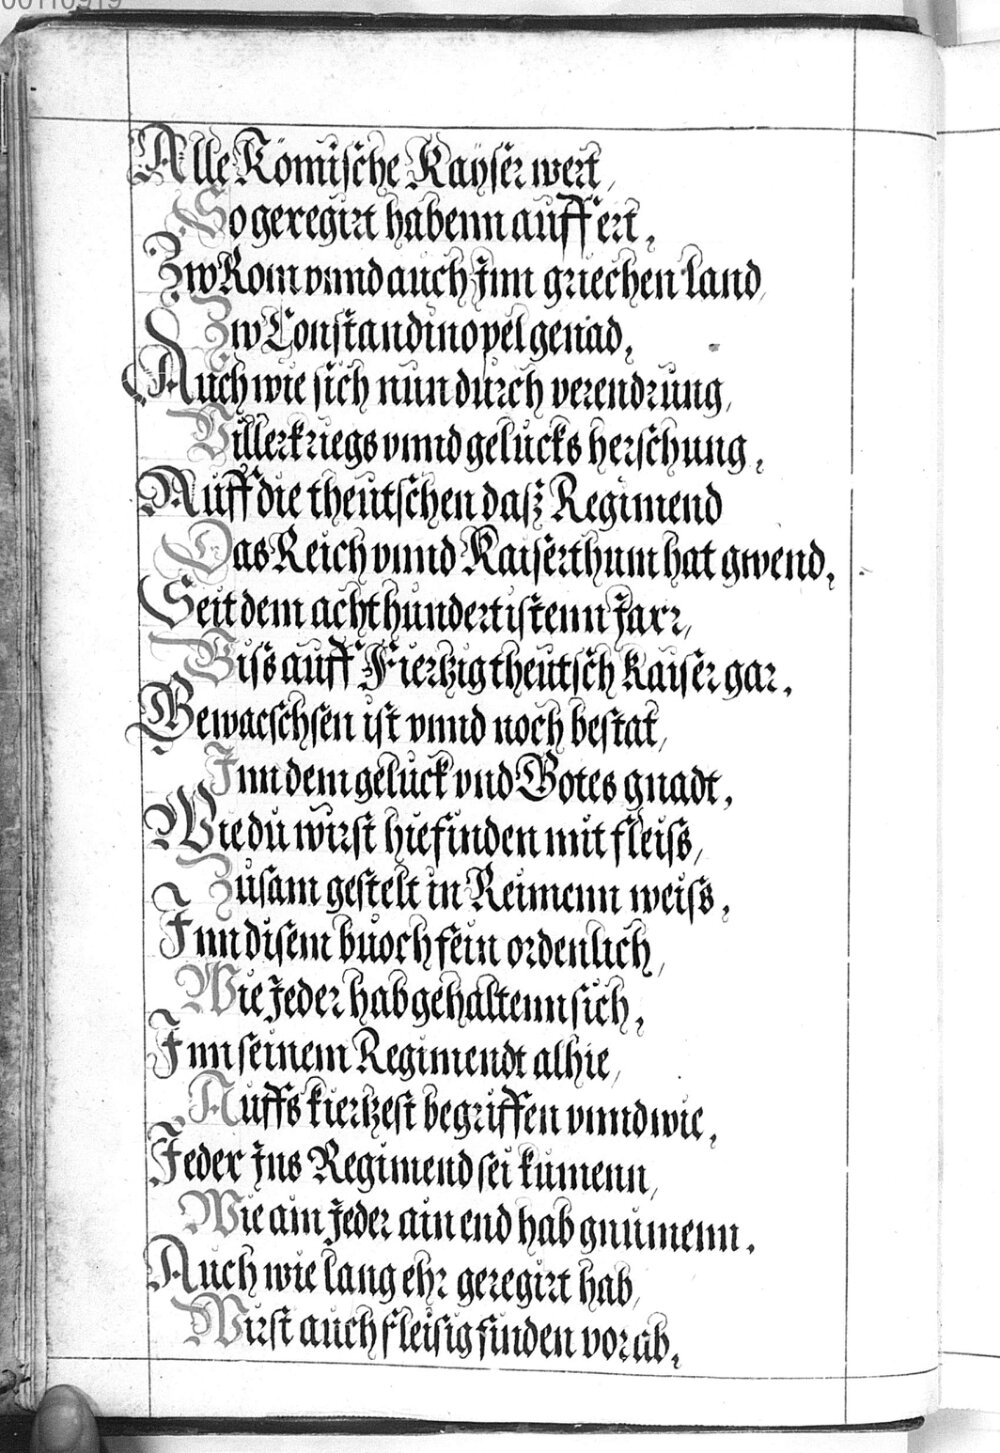 00110919
Alle Römische Kayser wert,
So geregirt habenn auff ert,
Zw Rom vnnd auch Jnn griechen land,
Zw Constandinopel genad,
Auch wie sich nun durch verendrung,
Viller kriegs vnnd gelücks herschung,
Auff die theütschen dasz Regimend
Das Reich vnnd Kaiserthum hat gwend,
Seit dem acht hundertistenn Jarr,
Biss auff Fiertzig theütsch kaiser gar.
Gewaeschsen ist vnnd noch bestat,
Jnn dem gelück vnd Gotes gnadt,
Wie du würst hie finden mit fleiss,
Zusam gestelt in Reimenn weiss,
Jnn disem buoch fein ordenlich,
Wie Jeder hab gehaltenn sich,
Jnn seinem Regimendt alhie,
Auffs kiertzest begriffen vnnd wie,
Jeder Jns Regimend sei kumenn,
Wie ain Jeder ain end hab gnumenn.
Auch wie lang ehr geregirt hab,
Wirst auch fleisig finden vorab,